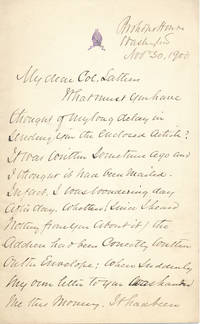 Bishop's House
Washington
Nov 20, 1900
My dear Col.
What must you have
thought of my long delay in
sending you the enclosed article?
It was written sometime ago and
I thought it had been mailed.
In fact, I was wondering day
after day whether, since I heard
nothing from you about it, the
address had been correctly written
on the envelope; when suddenly
my own letter to you was handed
me this morning. It had been